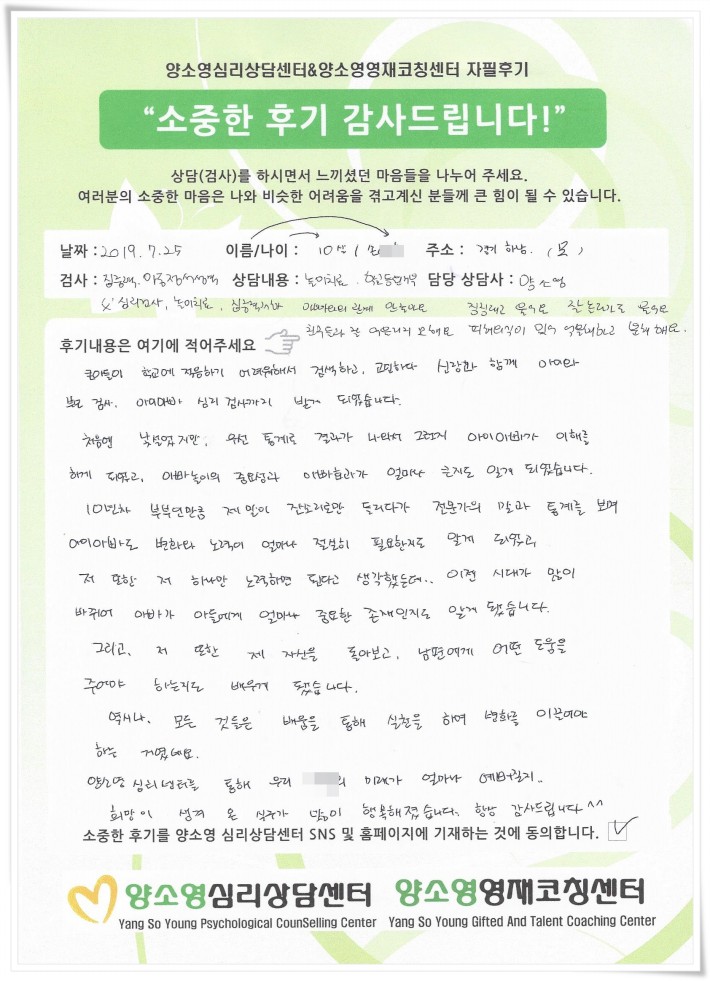 양소영심리상담센터&양소영영재코칭센터 자필후기
“소중한 후기 감사드립니다!”
상담(검사)를 하시면서 느끼셨던 마음들을 나누어 주세요.
여러분의 소중한 마음은 나와 비슷한 어려움을 겪고계신 분들께 큰 힘이 될 수 있습니다.
날짜 : 2019. 7. 25 이름/나이 : 10살 ( 주소 : 경기 하남. (모)
검사 : 집중력, 상담내용 : 놀이치료. 담당 상담사 : 양소영
& 심리검사, 놀이치료, 징징대고 울어요 잘 놀다가도 울어요
친구들과 잘 어울리지 못해요 피해의식이 있어 억울해하고 분해 해요.
후기내용은 여기에 적어주세요
학교에 적응하기 어려워해서 검색하고, 고민하다 신랑과 함께 아이와
부모 검사. 아이아빠 심리 검사까지 받게 되었습니다.
처음엔 낯설었지만, 우선 통계로 결과가 나와서 그런지 아이아빠가 이해를
하게 되었고, 아빠놀이의 중요성과 아빠효과가 얼마나 큰지도 알게 되었습니다.
10년차 부부인만큼 제 말이 잔소리로만 들리다가 전문가의 말과 통계를 보며
아이아빠도 변화와 노력이 얼마나 절실히 필요한지도 알게 되었고,
저 또한 저 하나만 노력하면 된다고 생각했는데.. 이젠 시대가 많이
바뀌어 아빠가 아들에게 얼마나 중요한 존재인지도 알게 됐습니다.
그리고, 저 또한 제 자신을 돌아보고, 남편에게 어떤 도움을
주어야 하는지도 배우게 됐습니다.
역시나, 모든 것들은 배움을 통해 실천을 하며 변화를 이끈어야
하는 거였네요.
양소영 심리센터를 통해 우리 의 미래가 얼마나 예뻐질지..
희망이 생겨 온 식구가 많이 행복해졌습니다. 항상 감사드립니다^^
소중한 후기를 양소영 심리상담센터 SNS 및 홈페이지에 기재하는 것에 동의합니다.
양소영심리상담센터 양소영영재코칭센터
Yang So Young Psychological CounSelling Center Yang So Young Gifted And Talent Coaching Center